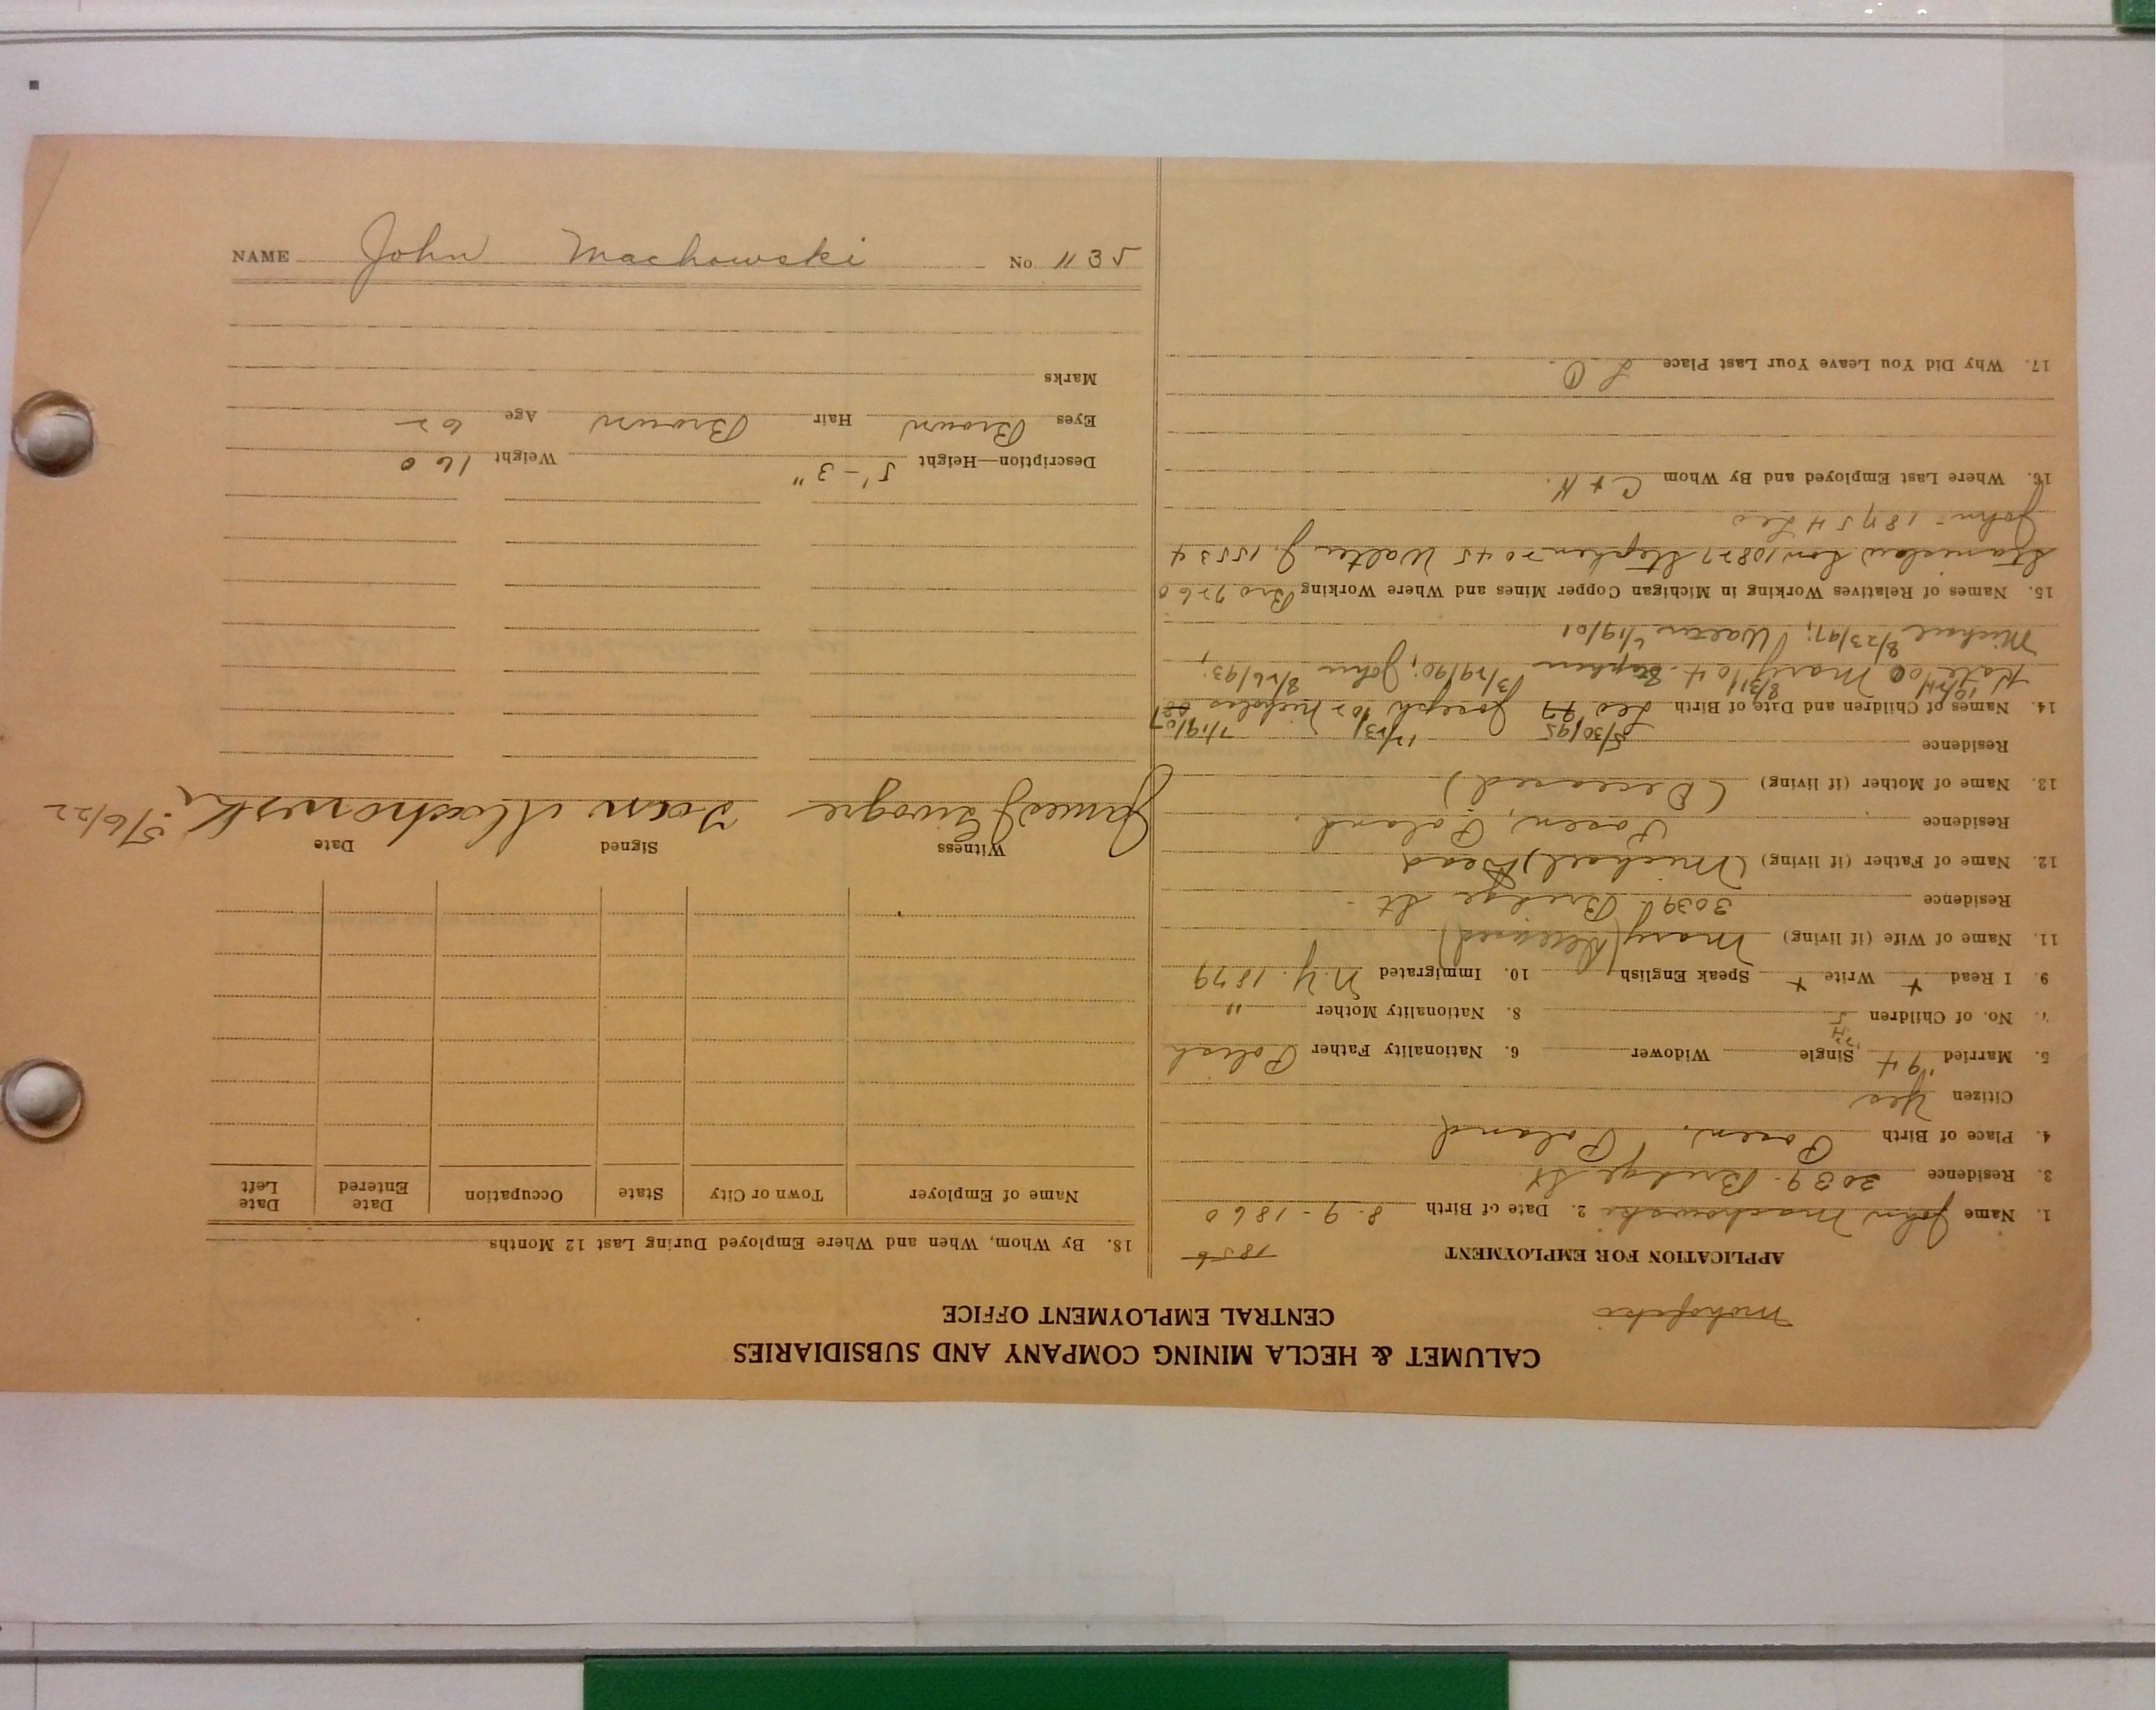 CALUMET & HECLA MINING COMPANY AND SUBSIDIARIES
CENTRAL EMPLOYMENT OFFICE
APPLICATION FOR EMPLOYMENT 1856
1. Name John Machowski 2. Date of Birth 8-9-1860
3. Residence 3039 Bridge St
4. Place of Birth Posen, Poland
Citizen Yes
5. Married 94 Single Widower 6. Nationality Father Polish
7. No. of Children 5 8. Nationality Mother "
9. I Read + Write + Speak English 10. Immigrated N.Y. 1879
11. Name of Wife (if living) Mary (Deceased)
Residence 3039 Bridge St
12. Name of Father (if living) (Michael) Dead
Residence Posen, Poland.
13. Name of Mother (if living) (Deceased)
Residence
5/30/95 12/23/ 7/19/07
14. Names of Children and Date of Birth Leo 97 Joseph 02 Nicholas 08
10/24/00 8/31/04 3/29/90; 8/26/93;
Kate Mary Stephen John
Michael 8/23/97; Walter 6/19/01
15. Names of Relatives Working in Michigan Copper Mines and Where Working Bro 7260
Stanislaw Son 10877 Stephen 7045 Walter J. 15534
John - 18754 Leo
16. Where Last Employed and By Whom C & H.
17. Why Did You Leave Your Last Place L O.
18. By Whom, When and Where Employed During Last 12 Months
Name of Employer Town or City State Occupation Date Entered Date Left
Witness Signed Date
Jan Machowski 5/6/22
Description—Height 5'-3" Weight 160
Eyes Brown Hair Brown Age 62
Marks
NAME John Machowski No 1135